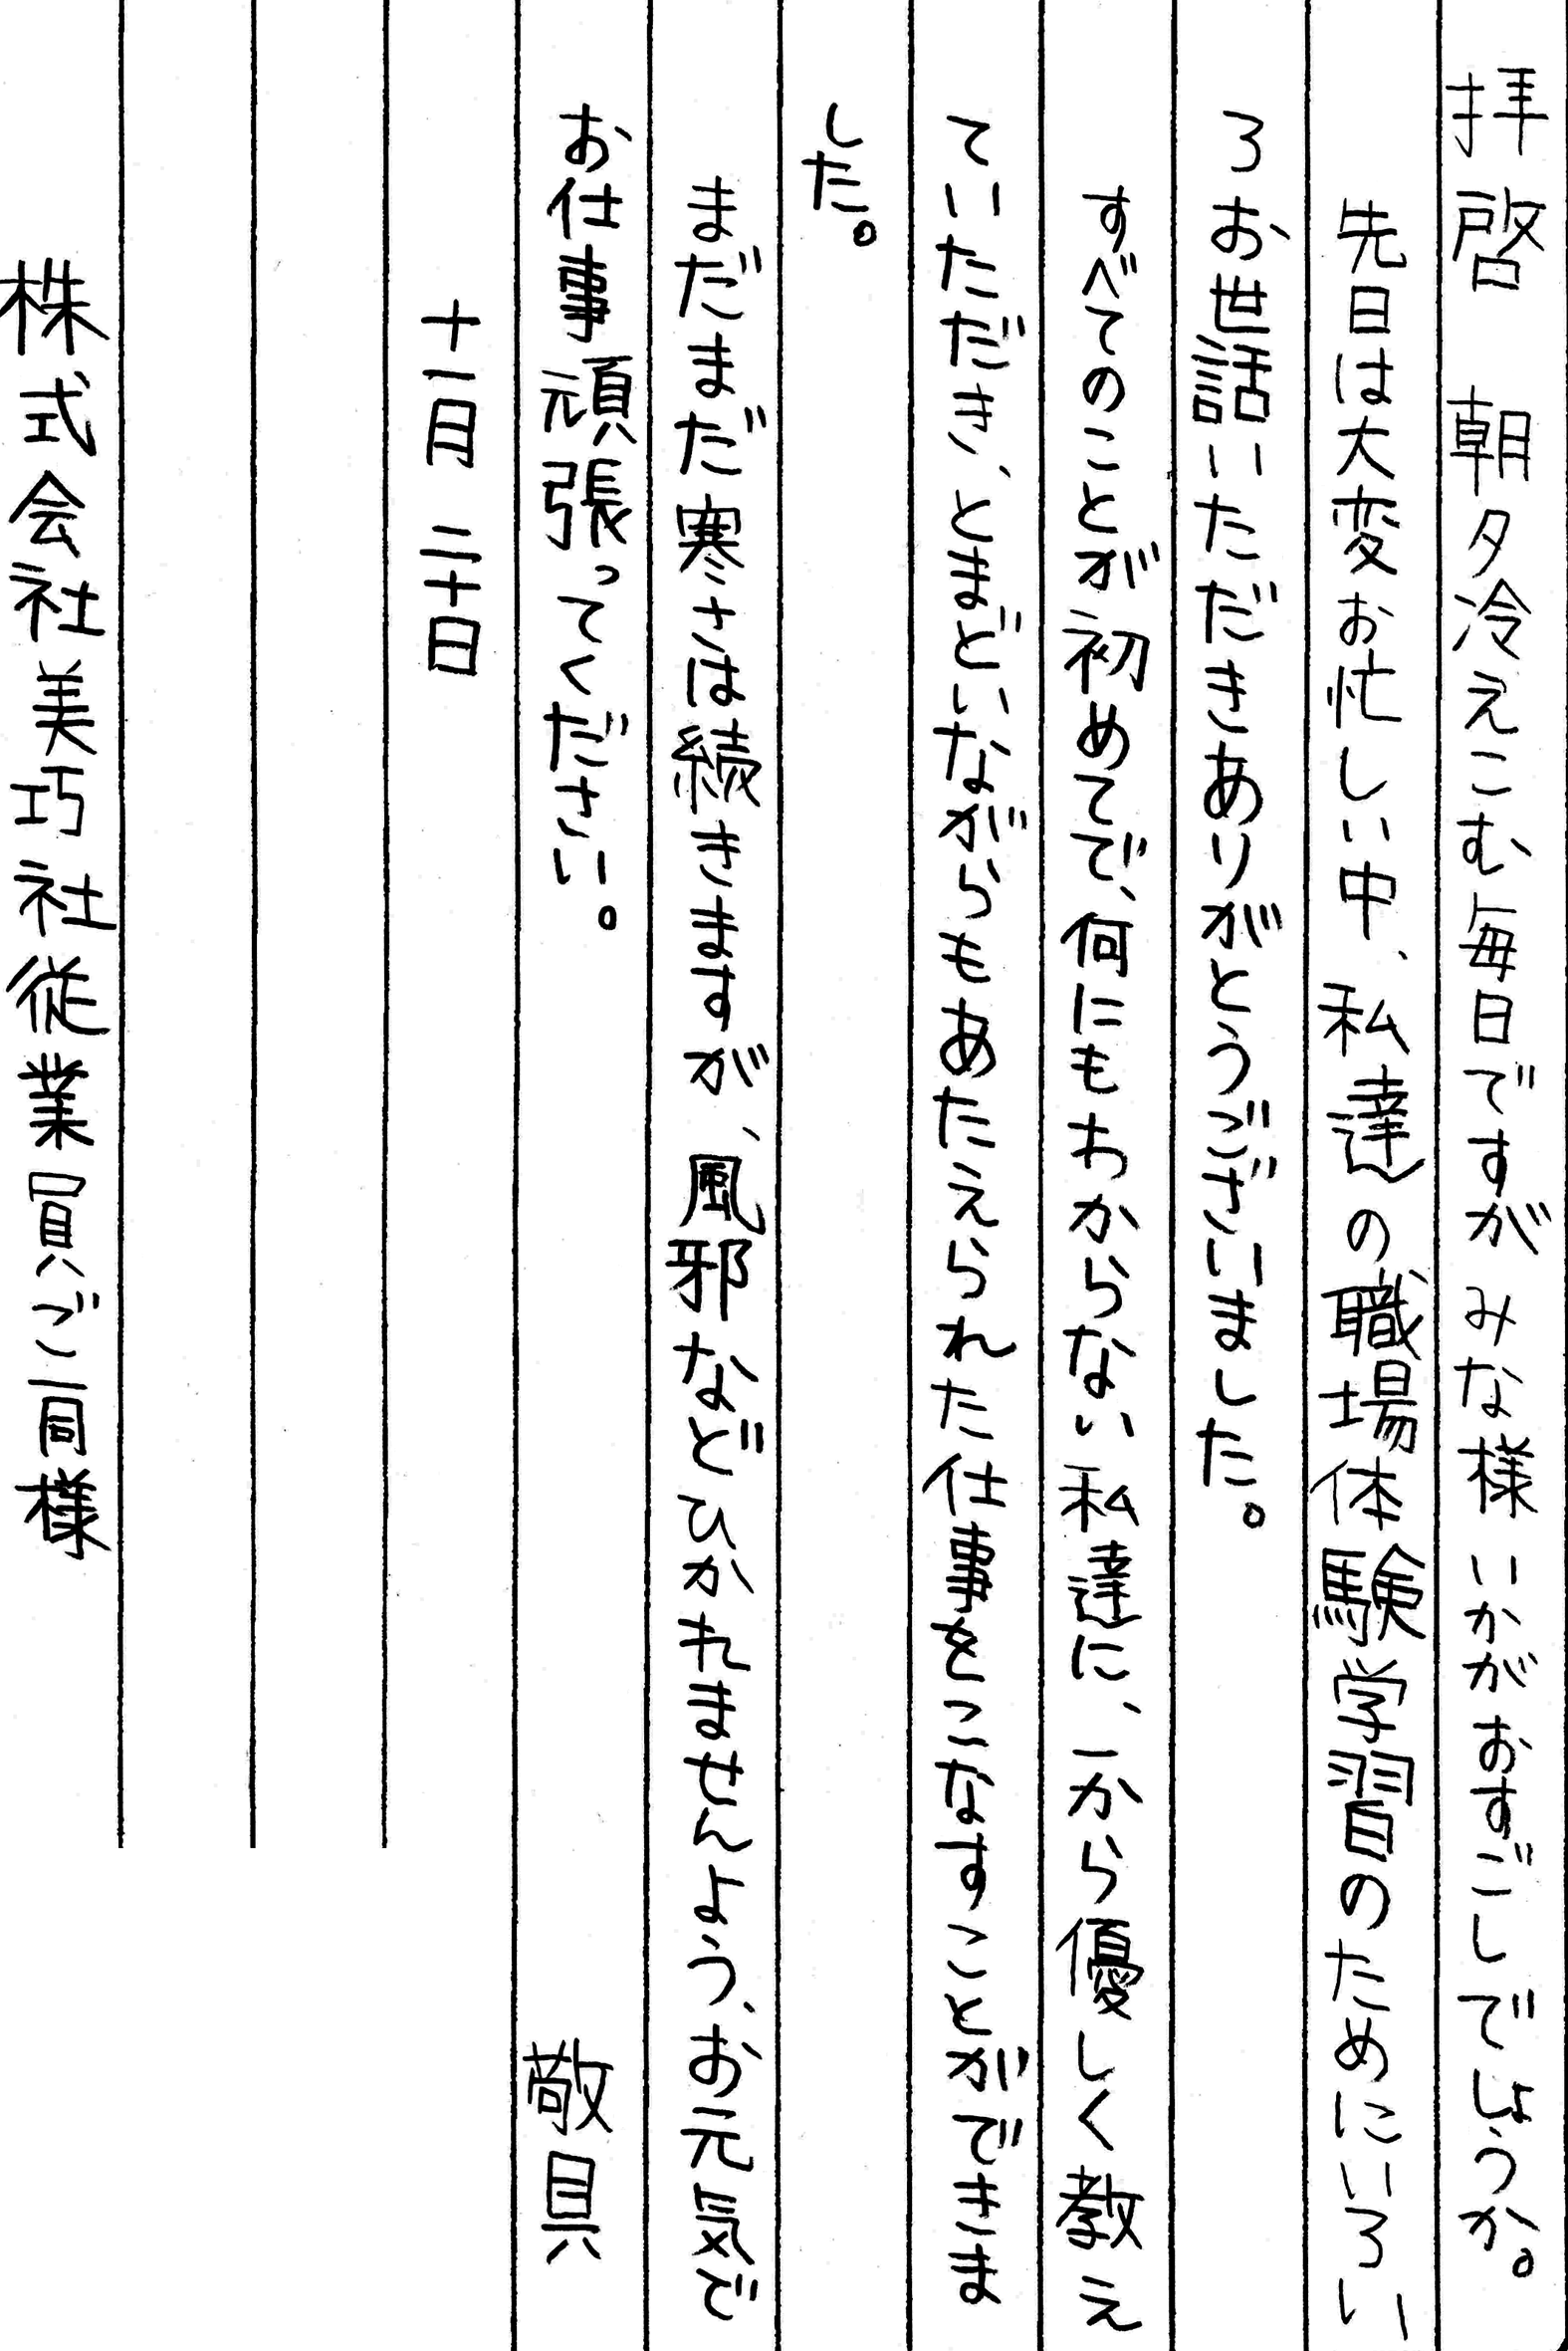 拝啓　朝夕冷えこむ毎日ですがみな様いかがおすごしでしょうか。
先日は大変お忙しい中、私達の職場体験学習のためにいろい
ろお世話いただきありがとうございました。
すべてのことが初めてで、何にもわからない私達に、一から優しく教え
ていただき、とまどいながらもあたえられた仕事をこなすことができま
した。
まだまだ寒さは続きますが、風邪などひかれませんよう、お元気で
お仕事頑張ってください。　敬具
十一月　二十日
株式会社美巧社従業員ご一同様